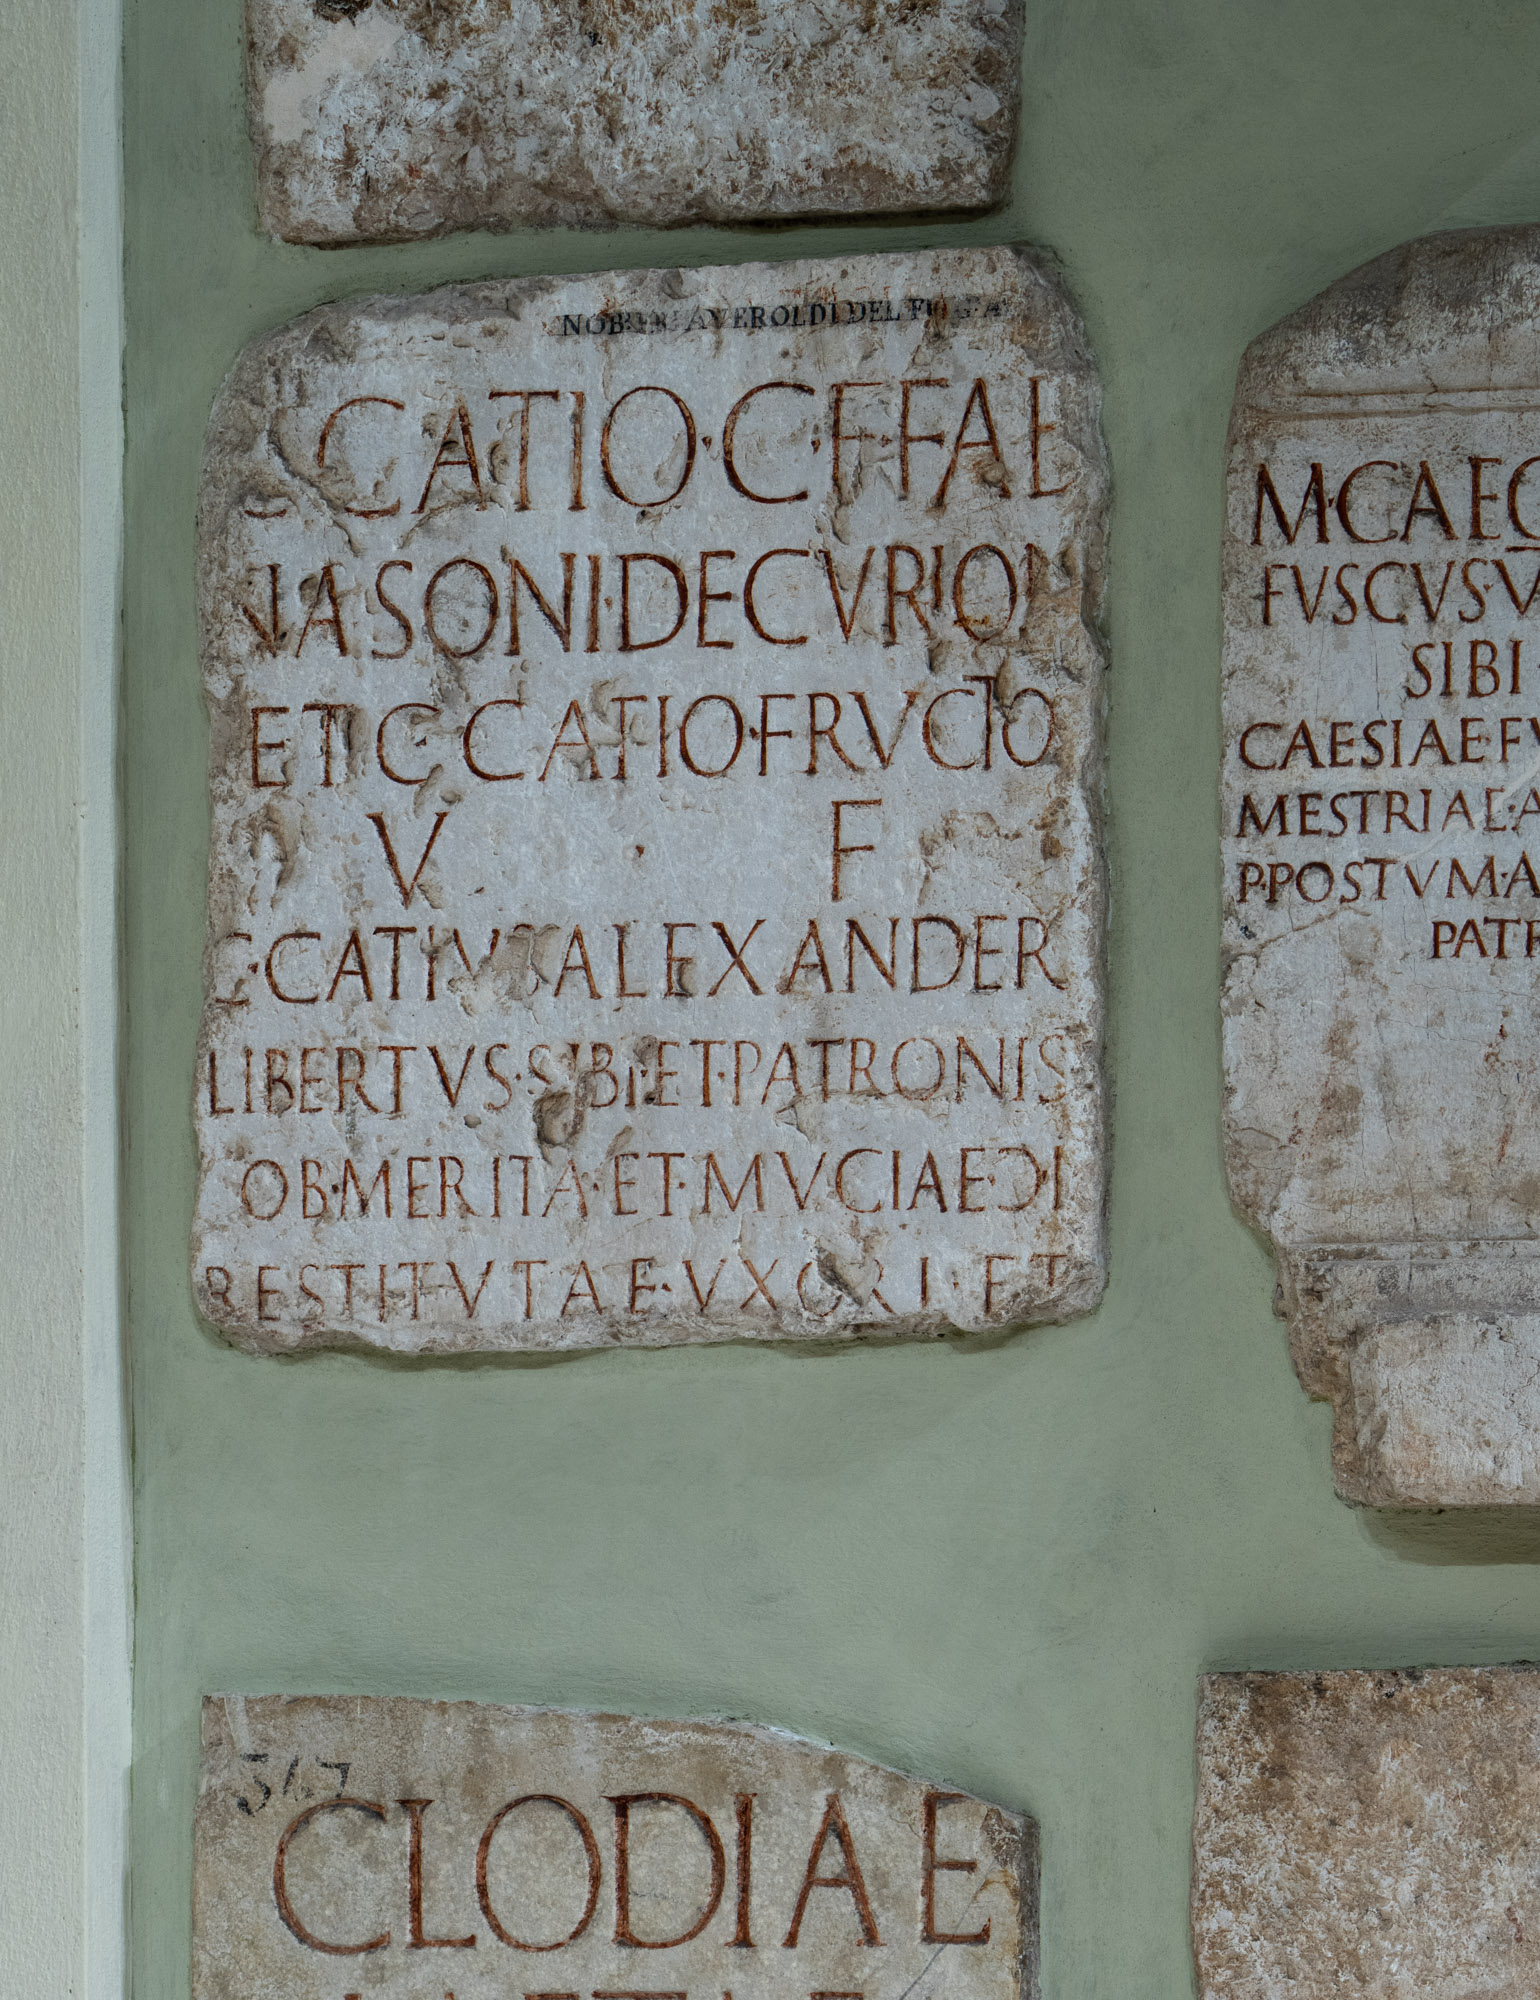 AVEROLDI DEL
C CATIO·C·F·FAB
NASONI·DECVRION
ET C·CATIO·FRVCTO
V F
C·CATIVS ALEXANDER
LIBERTVS·SIBI·ET·PATRONIS
OB·MERITA·ET·MVCIAE·Ɔ·L
RESTITVTAE·VXORI·ET
M·CAEC
FVSCVS·V
SIBI·
CAESIAE·FV
MESTRIAE·A
P·POSTVM·A
PATR
347
CLODIAE